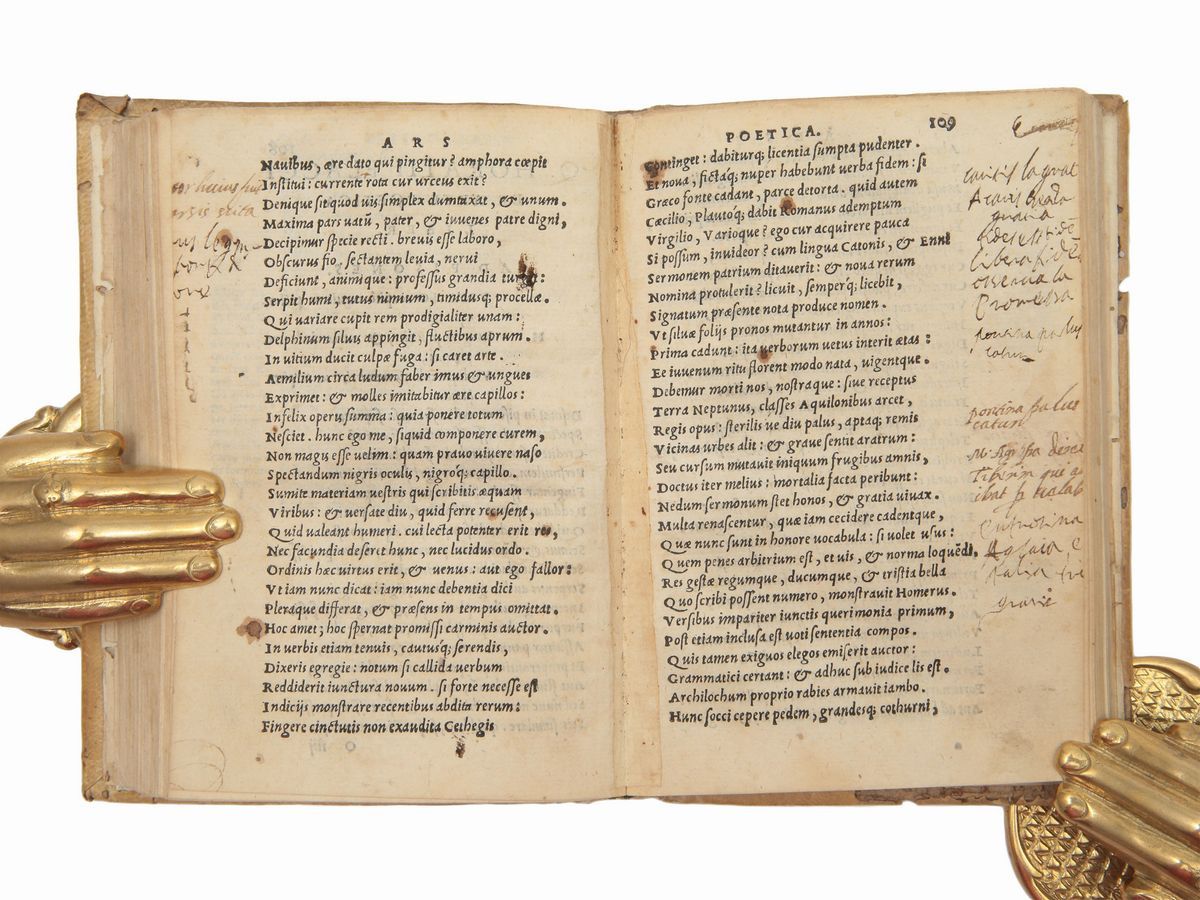 ARS
Nauibus, ære dato qui pingitur? amphora cœpit
Institui: currente rota cur urceus exit?
Denique sit quod uis simplex dumtaxat, & unum.
Maxima pars uatū, pater, & iuuenes patre digni,
Decipimur specie recti. breuis esse laboro,
Obscurus fio, sectantem leuia, nerui
Deficiunt, animique: professus grandia turget:
Serpit humi, tutus nimium, timidusq; procellæ.
Qui uariare cupit rem prodigialiter unam:
Delphinum siluis appingit, fluctibus aprum.
In uitium ducit culpæ fuga: si caret arte.
Aemilium circa ludum faber imus & ungues
Exprimet: & molles imitabitur ære capillos:
Infelix operis summa: quia ponere totum
Nesciet. hunc ego me, siquid componere curem,
Non magis esse uelim: quam prauo uiuere naso
Spectandum nigris oculis, nigroq; capillo.
Sumite materiam uestris qui scribitis æquam
Viribus: & uersate diu, quid ferre recusent,
Quid ualeant humeri. cui lecta potenter erit res,
Nec facundia deseret hunc, nec lucidus ordo.
Ordinis hæc uirtus erit, & uenus: aut ego fallor:
Vt iam nunc dicat: iam nunc debentia dici
Pleraque differat, & præsens in tempus omittat.
Hoc amet; hoc spernat promissi carminis auctor.
In uerbis etiam tenuis, cautusq; serendis,
Dixeris egregie: notum si callida uerbum
Reddiderit iunctura nouum. si forte necesse est
Indicijs monstrare recentibus abdita rerum:
Fingere cinctutis non exaudita Cethegis
POETICA.
109
Continget: dabiturq; licentia sumpta pudenter.
Et noua, fictaq; nuper habebunt uerba fidem: si
Græco fonte cadant, parce detorta. quid autem
Cæcilio, Plautoq; dabit Romanus ademptum
Virgilio, Varioque? ego cur acquirere pauca
Si possum, inuideor? cum lingua Catonis, & Enni
Sermonem patrium ditauerit: & noua rerum
Nomina protulerit? licuit, semperq; licebit,
Signatum præsente nota produce nomen.
Vt siluæ folijs pronos mutantur in annos:
Prima cadunt: ita uerborum uetus interit ætas:
Ee iuuenum ritu florent modo nata, uigentque.
Debemur morti nos, nostraque: siue receptus
Terra Neptunus, classes Aquilonibus arcet,
Regis opus: sterilis ue diu palus, aptaq; remis
Vicinas urbes alit: & graue sentit aratrum:
Seu cursum mutauit iniquum frugibus amnis,
Doctus iter melius: mortalia facta peribunt:
Nedum sermonum stet honos, & gratia uiuax.
Multa renascentur, quæ iam cecidere cadentque,
Quæ nunc sunt in honore uocabula: si uolet usus:
Quem penes arbitrium est, et uis, & norma loquēdi.
Res gestæ regumque, ducumque, & tristia bella
Quo scribi possent numero, monstrauit Homerus.
Versibus impariter iunctis querimonia primum,
Post etiam inclusa est uoti sententia compos.
Quis tamen exiguos elegos emiserit auctor:
Grammatici certant: & adhuc sub iudice lis est.
Archilochum proprio rabies armauit iambo.
Hunc socci cepere pedem, grandesq; cothurni,